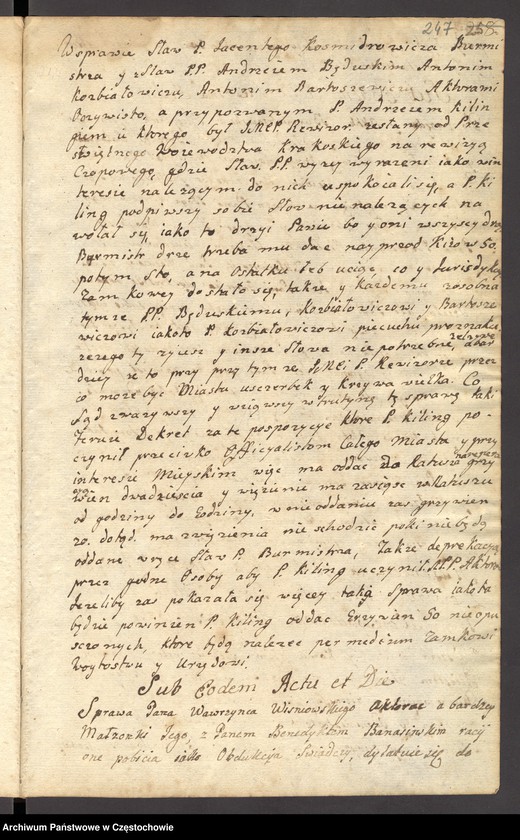 247 258
W sprawie Slaw P. Jacentego Kosmidrowicza Burmi
strza y Slaw PP. Andrzeiem Będuskim Antonim
Korbiałowiczu, Antonim Bartoszewiczu Aktorami
Oczywisto, a przypozwanym P. Andrzeiem Kilin
giem u ktorego był JMCP. Rewizor zesłany od Prze
swiętnego Woiewodztwa Krakoskiego na rewizyą
Czopowego, gdzie Slaw. PP. wyzey wyrazeni iako w in
teresie nalezącym do nich uspokoiali się, a P. Ki
ling podpiwszy sobie Słow nie nalezących na
wołał się, iako to drzyi Panie bo y oni wszyscy drą
Burmistr drze trzeba mu dac nayprzod Kiiow 50.
potym Sto, a na Ostatku łeb uciąc, co y Jurisdykcy
Zamkowey dostało się, takze y kazdemu zosobna
tymze PP. Będuskiemu, Korbiałowiczowi y Bartosze
wiczowi iakoto P. Korbiałowiczowi piecuchu
rzego ty zyiesz y insze słowa nie potrzebne, a bar
dziey ze to przy przytomnym JMCi P. Rewizorze przez
co moze byc Miastu uszczerbek y krzywa wielka. Co
Sąd zwazywszy y wziąwszy w trutynę tę sprawę taki
Feruie Dekret za te pospozycye ktore P. Kiling po-
czynił przeciwko Officyalistom Całego Miasta y przy
interesie Mieyskim więc ma oddac do Ratusza grzy
wien dwadziescia y więzienie ma zasięsc w Ratuszu
od godziny do Godziny, w nie oddaniu zas grzywien
20. dotąd ma z więzienia nie schodzic poki nie będą
oddane w ręce Slaw P. Burmistrza, Takze deprekacyą
przez godne Osoby aby P. Kiling uczynił PP. Aktorom
Jezeliby zas pokazała się więcey taką Sprawa iakoba
będzie powinien P. Kiling oddac Grzywien 50 nieopu
sczonych, ktore będą nalezec per medium Zamkowi
Woytostwu y Urzędowi.
Sub Eodem Actu et Die
Sprawa Pana Wawrzynca Wisniowskiego Aktora a bardziey
Małzonki Jego, z Panem Benedyktem Banasinskim racy
one pobicia iako Obdukcya Swiadczy, dylatuie się do
Archiwum Państwowe w Częstochowie